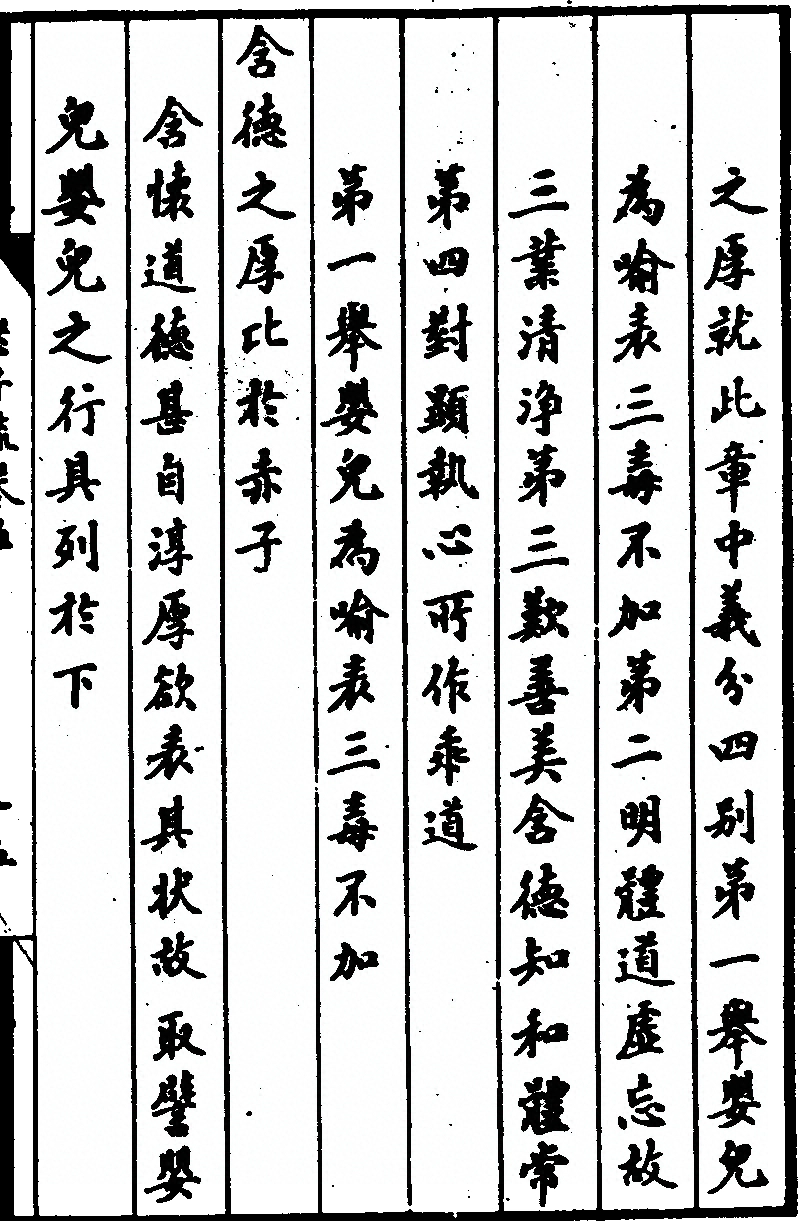 之厚就此章中義分四別第一舉嬰兒
為喻表三毒不加第二明體道虛忘故
三業清淨第三歎善美含德知和體常
第四對顯執心所作乖道
第一舉嬰兒為喻表三毒不加
含德之厚比於赤子
含懷道德甚自淳厚欲表其狀故取譬嬰
兒嬰兒之行具列於下